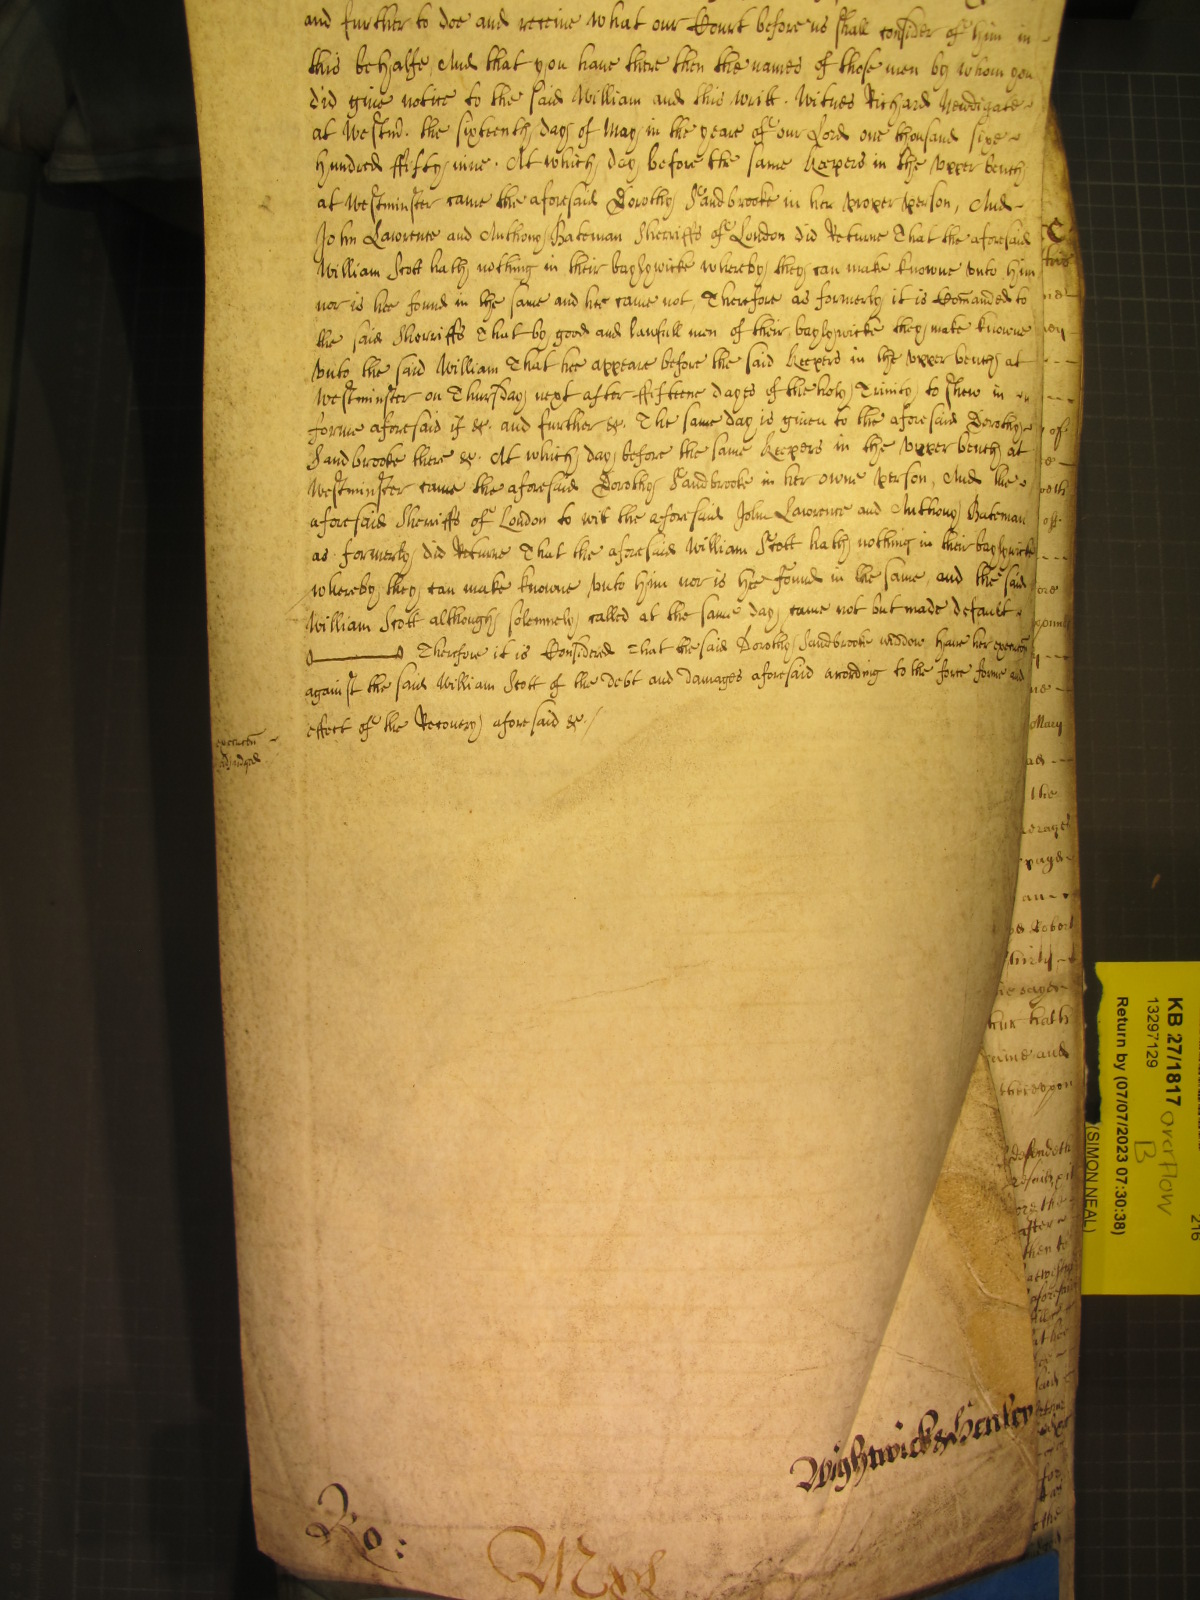 and further to doe and receive what our Court before us shall consider of him in
this behalfe, And that you have there then the names of those men by whom you
did give notice to the said William and this writt. Witnes Richard Newdigate
at Westmr. the sixteenth day of May in the yeare of our Lord one thousand sixe
hundred fifty nine. At which day before the same Keepers in the upper bench
at Westminster came the aforesaid Dorothy Sandbrooke in her proper person, And
John Lawrence and Anthony Bateman Sherriffs of London did Returne That the aforesaid
William Scott hath nothing in their baylywicke whereby they can make knowne unto him
nor is hee found in the same and hee came not, Therefore as formerly it is Comanded to
the said Sherriffs That by good and lawfull men of their baylywicke they make knowne
unto the said William That hee appeare before the said Keepers in the upper bench at
Westminster on Thursday next after fifteene dayes of the holy Trinity to shew in
forme aforesaid if &c. and further &c. The same day is given to the aforesaid Dorothy
Sandbrooke there &c. At which day before the same Keepers in the upper bench at
Westminster came the aforesaid Dorothy Sandbrooke in her owne person, And the
aforesaid Sherriffs of London to wit the aforesaid John Lawrence and Anthony Bateman
as formerly did Returne That the aforesaid William Scott hath nothing in their baylywicke
whereby they can make knowne unto him nor is hee found in the same, and the said
William Scott although solemnely called at the same day came not but made default
Therefore it is Considered That the said Dorothy Sandbrooke widdow have her execucon
against the said William Scott of the debt and damages aforesaid according to the force forme and
effect of the Recovery aforesaid &c.
execucon
adjudged
Wightwick & Henley
Ro:
KB 27/1817 overflow
B
13297129
Return by (07/07/2023 07:30:38)
(SIMON NEAL)
216
of
Mary
the
hath
and
thereupon